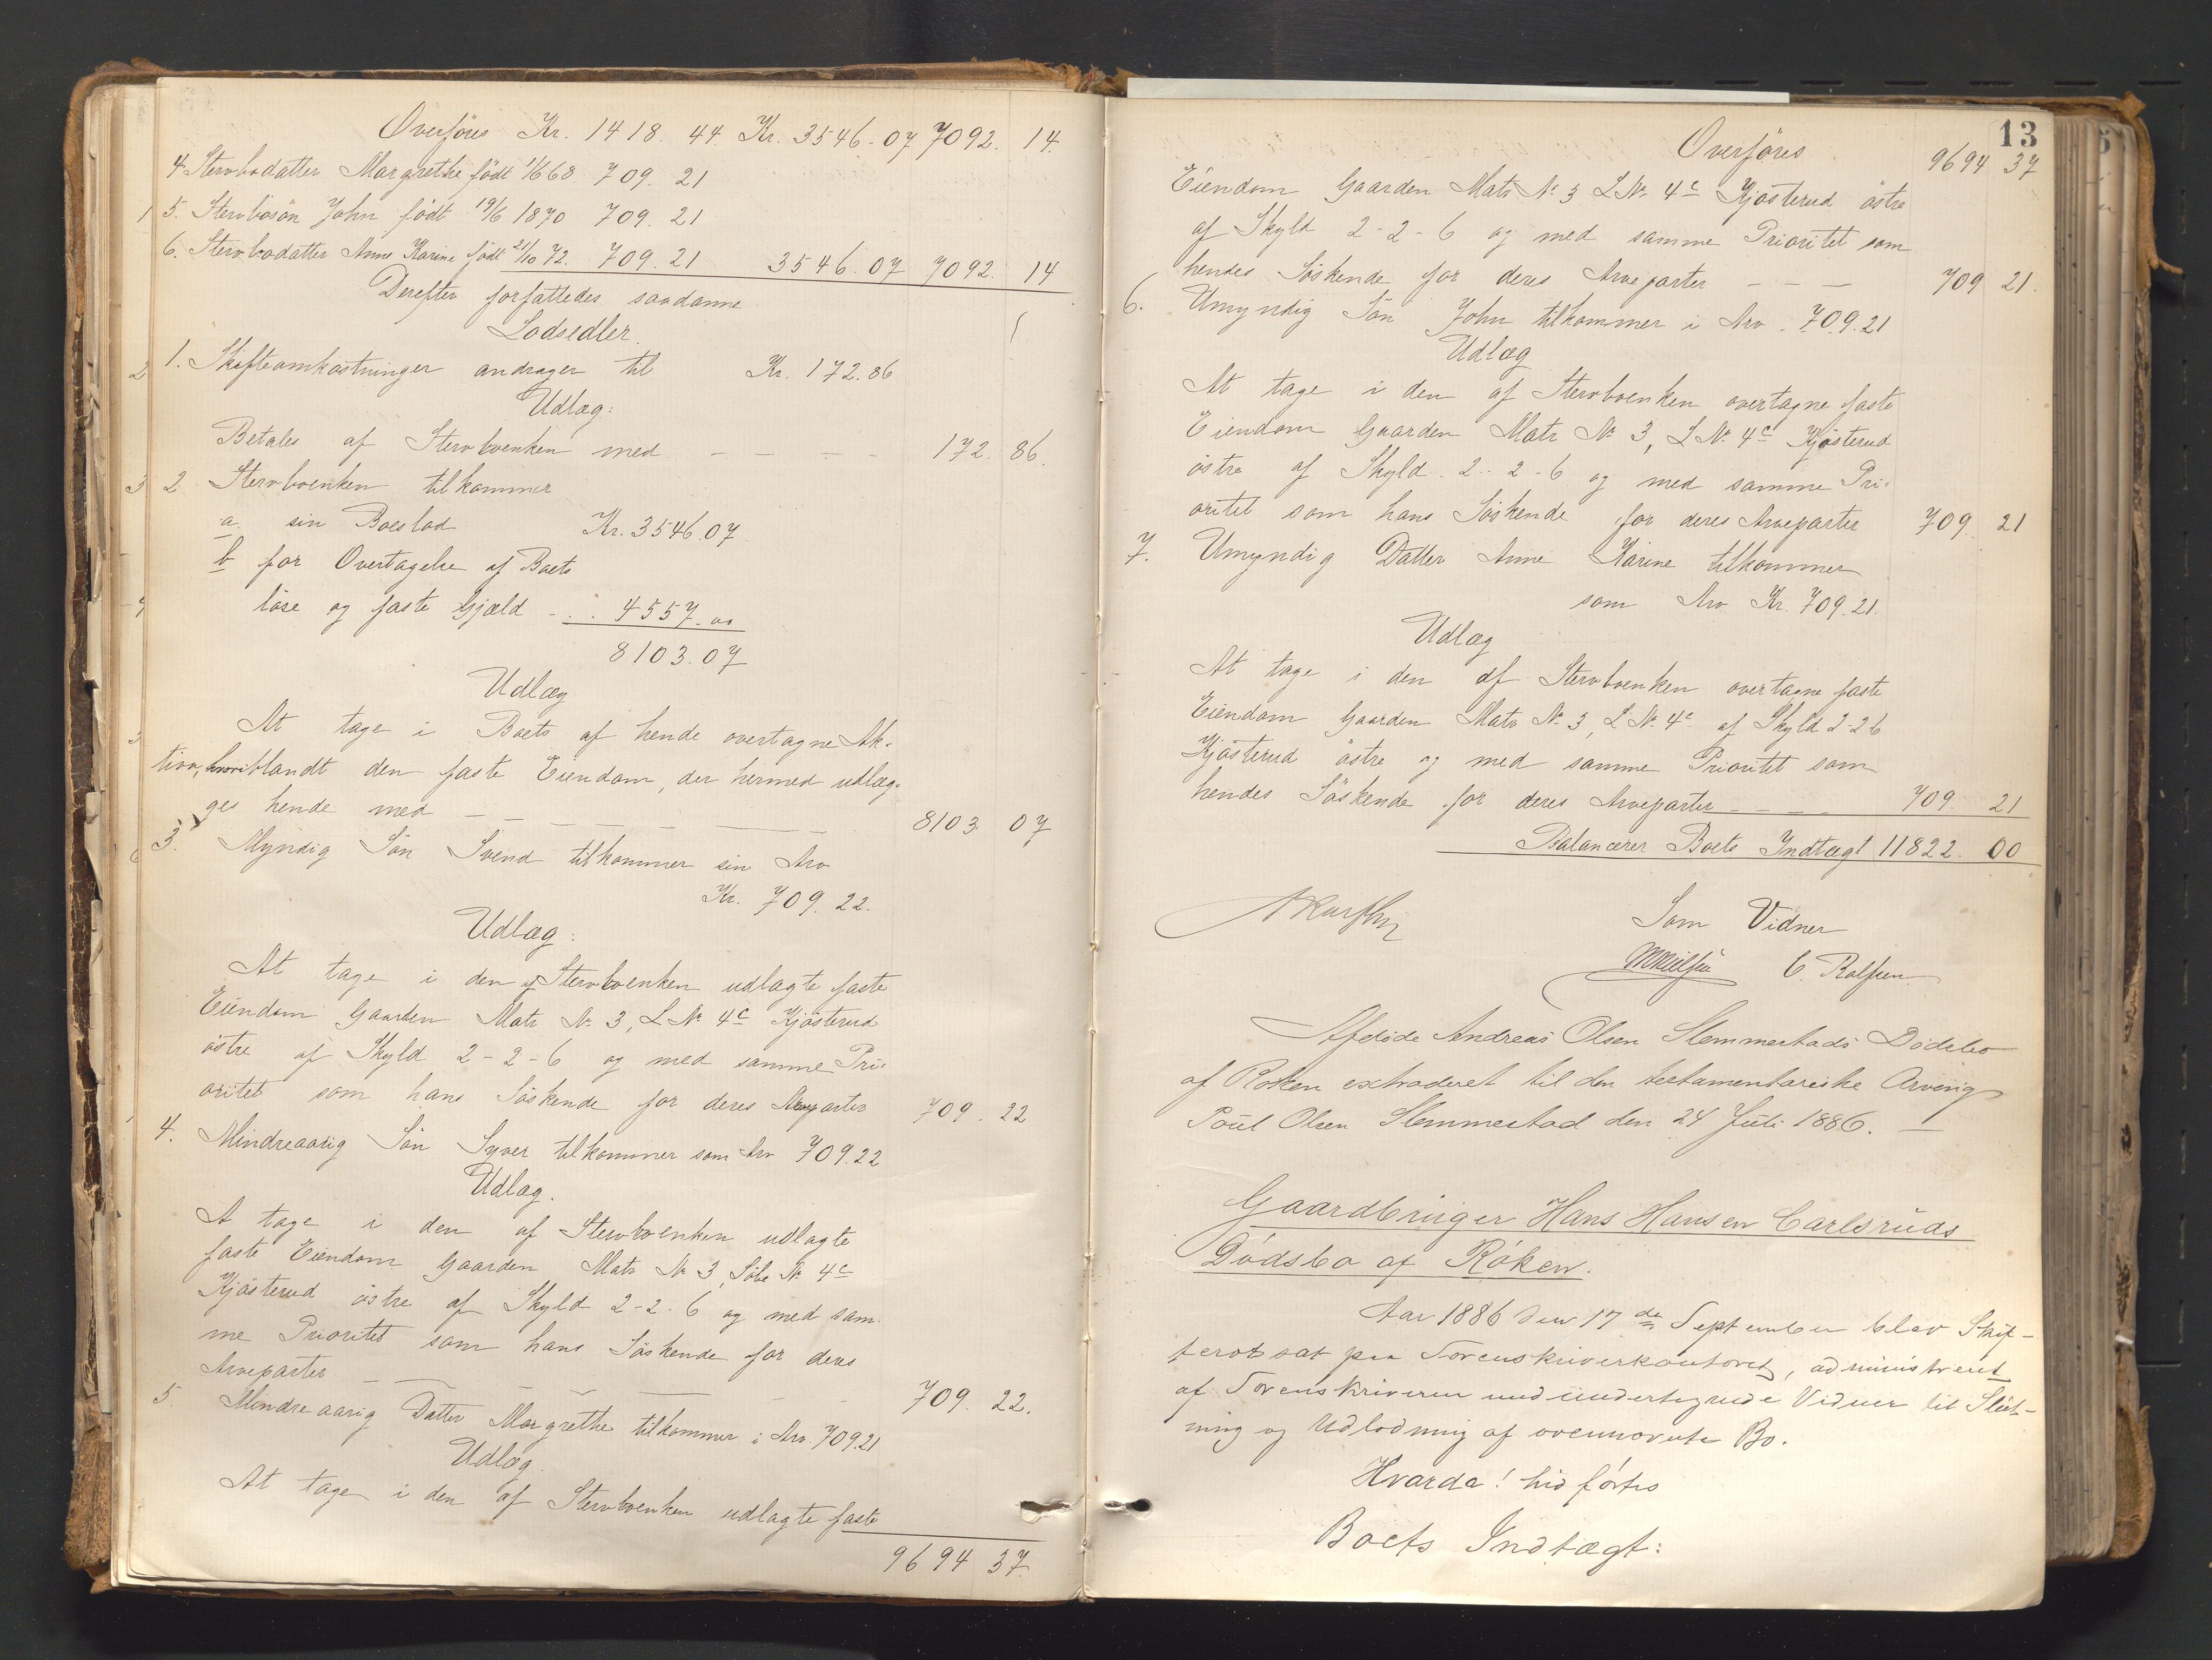 Overføres Kr. 1418. 44. Kr. 3546-07 7092. 14.
4. Stervbodatter Margrethe født 1/6 68 709. 21
5. Stervbosön John født 19/6 1870 709. 21
6. Stervbodatter Anne Karine født 21/10 72. 709. 21 3546. 07 7092. 14
Derefter forfattedes saadanne
Lodsedler.
1. Skifteomkostninger andrager til Kr. 172. 86
Udlæg:
Betales af Stervboenken med - - - - 172. 86.
2 Stervboenken tilkommer
a. sin Boeslod Kr. 3546. 07
b for Overtagelse af Boets
löse og faste Gjæld - . . 4557. 00
8103. 07
Udlæg
At tage i Boets af hende overtagne Ak-
tiva, hvoriblandt den faste Eiendom, der hermed udlæg-
ges hende med - - - - - - - 8103. 07
3. Myndig Sön Svend tilkommer sin Arv
Kr. 709. 22.
Udlæg:
At tage i den af Stervboenken udlagte faste
Eiendom Gaarden Matr No 3, L No 4c Kjösterud
östre af Skyld 2-2-6 og med samme Pri-
oritet som hans Söskende for deres Arveparter 709. 22
4. Mindreaarig Sön Syver tilkommer som Arv 709. 22
Udlæg.
At tage i den af Stervboenken udlagte
faste Eiendom Gaarden Matr No 3, Löbe No 4c
Kjösterud östre af Skyld 2-2-6 og med sam-
me Prioritet som hans Söskende for deres
Arveparter - - - - - - 709. 22.
5. Mindreaarig Datter Margrethe tilkommer i Arv 709. 21
Udlæg
At tage i den af Stervboenken udlagte faste
9694 37.
13
Overföres 9694 37
Eiendom Gaarden Matr No 3 L No 4c Kjösterud östre
af Skyld 2-2-6 og med samme Prioritet som
hendes Söskende for deres Arveparter - - - 709 21.
6. Umyndig Sön John tilkommer i Arv. 709. 21
Udlæg
At tage i den af Stervboenken overtagne faste
Eiendom Gaarden Matr No 3, L No 4c Kjösterud
östre af Skyld 2-2-6 og med samme Pri-
oritet som hans Söskende for deres Arveparter 709. 21
7. Umyndig Datter Anne Karine tilkommer
som Arv Kr. 709. 21.
Udlæg
At tage i den af Stervboenken overtagne faste
Eiendom Gaarden Matr No 3, L No 4c af Skyld 2-2-6
Kjösterud östre og med samme Prioritet som
hendes Söskende for deres Arveparter - - - 709. 21
Balancerer Boets Indtægt 11822. 00
Som Vidner
C. Rolfsen
Afdöde Andreas Olsen Slemmestads Dödsbo
af Röken extraderet til den testamentariske Arving
Poul Olsen Slemmestad den 24 Juli 1886. -
Gaardbruger Hans Hansen Carlsruds
Dödsbo af Röken.
Aar 1886 den 17de September blev Skif-
teret sat paa Sorenskriverkontoret, administreret
af Sorenskriveren med undertegnede Vidner til Slut-
ning og Udlodning af ovennævnte Bo.
Hvorda! hidførtes
Boets Indtægt: